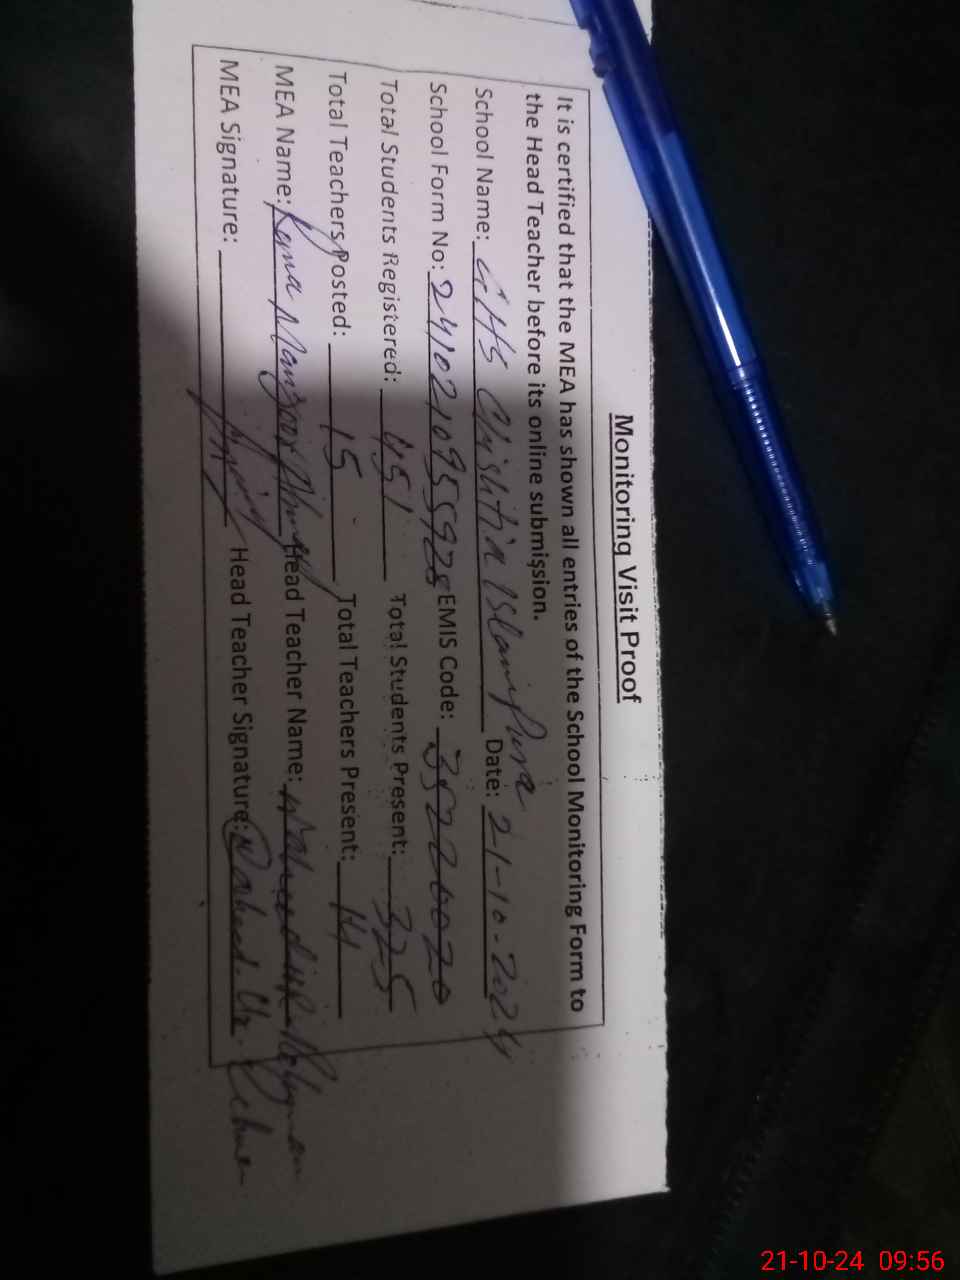 Monitoring Visit Proof
It is certified that the MEA has shown all entries of the School Monitoring Form to
the Head Teacher before its online submission.
School Name: GHS Chishtia Islampura Date: 21-10-2024
School Form No: EMIS Code: 35220020
Total Students Registered: 451 Total Students Present: 325
Total Teachers Posted: 15 Total Teachers Present: 14
MEA Name: Rana Manzoor Ahmad Head Teacher Name: Waheed ur Rehman
MEA Signature: Head Teacher Signature: Waheed. Ur. Rehman
21-10-24 09:56